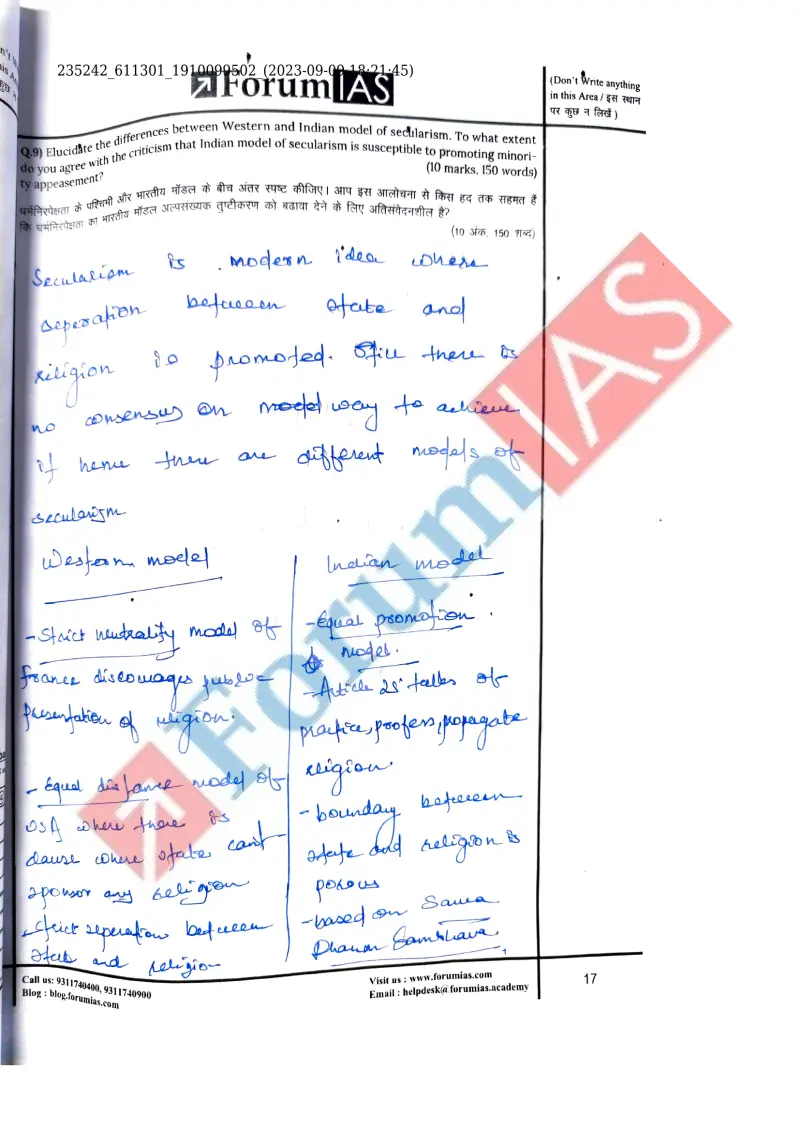 235242_611301_1910099502 (2023-09-09 18:21:45)
ForumIAS
(Don't Write anything
in this Area / इस स्थान
पर कुछ न लिखें )
Q.9) Elucidate the differences between Western and Indian model of secularism. To what extent
do you agree with the criticism that Indian model of secularism is susceptible to promoting minori-
ty appeasement?
(10 marks, 150 words)
धर्मनिरपेक्षता के पश्चिमी और भारतीय मॉडल के बीच अंतर स्पष्ट कीजिए। आप इस आलोचना से किस हद तक सहमत हैं
कि धर्मनिरपेक्षता का भारतीय मॉडल अल्पसंख्यक तुष्टीकरण को बढावा देने के लिए अतिसंवेदनशील है?
(10 अंक, 150 शब्द)
Secularism is modern idea where
seperation between state and
religion is promoted. Still there is
no consensus on model way to achieve
it hence there are different models of
secularism
Western model
- Strict neutrality model of
france discourages public
presentation of religion.
- Equal distance model of
USA where there is
clause where state can't
sponsor any religion
- Strict seperation between
state and religion
Indian model
- Equal promotion
model.
- Article 25 talks of
practice, profess, propagate
religion.
- boundary between
state and religion is
porous
- based on Sarva
Dharam Sambhava.
Call us: 9311740400, 9311740900
Blog : blog.forumias.com
Visit us : www.forumias.com
Email : helpdesk@forumias.academy
17
ForumIAS